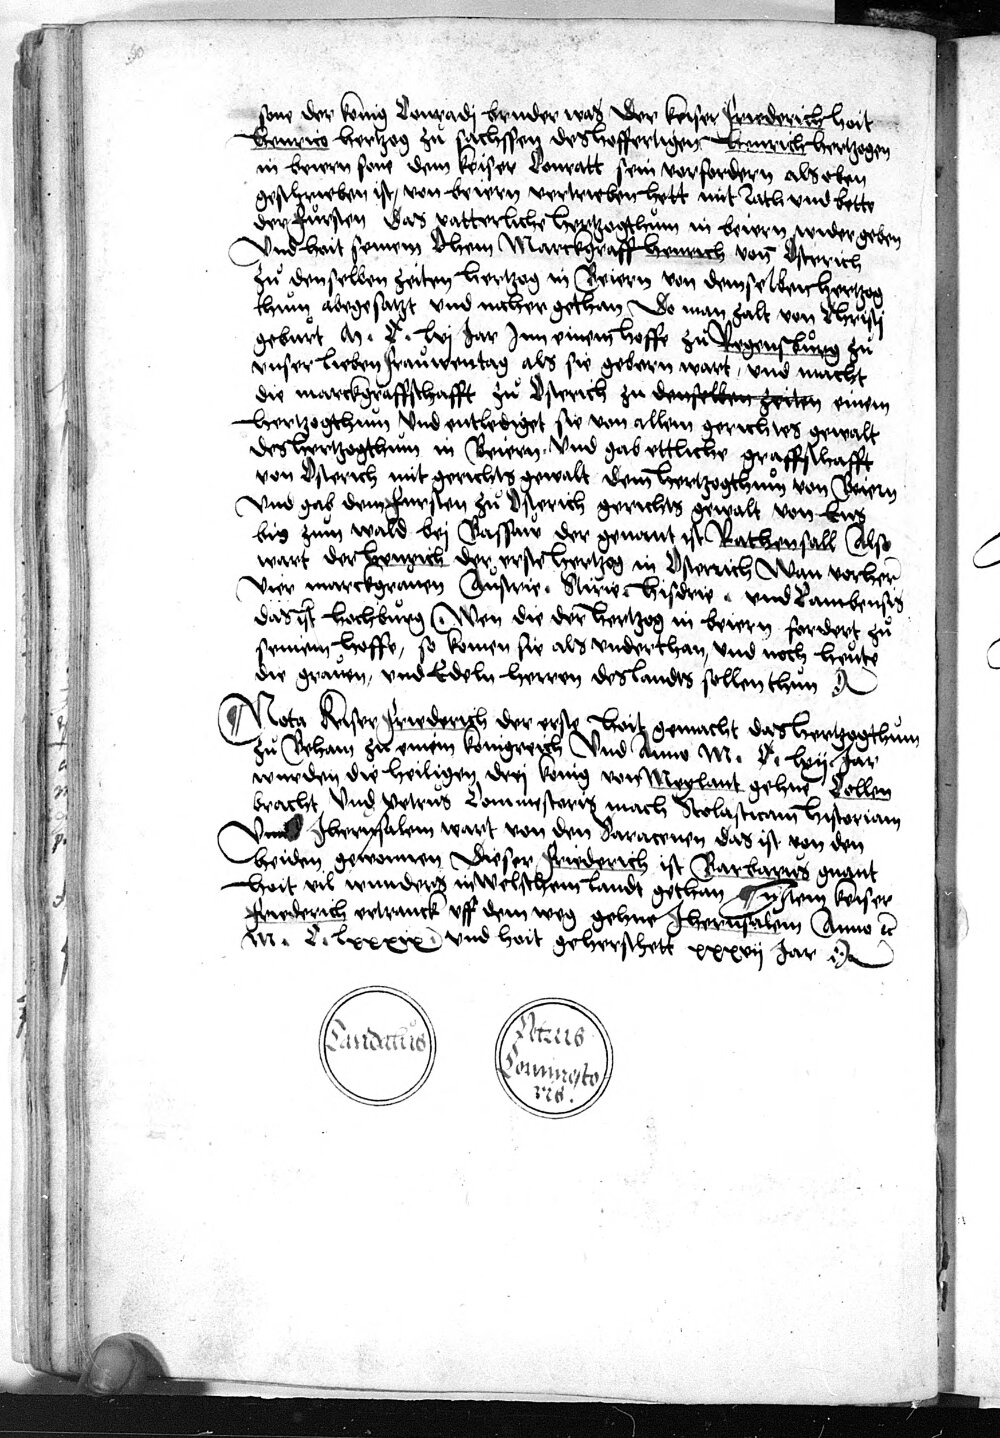 sone der konig Conradj bruder was Der keiser Friederich hoit
Henrico hertzog zu sachssen des hoffertigen Henrich hertzogen
in beiern sone dem keiser Conratt sein vorfordern als oben
geschrieben ist, von beiern vertrieben hett mit Rath und bette
der Fursten das vatterliche hertzogthum in beiern wider geben
Und hait seinem Ohem Marckgraff Henrich von Osterich
zu denselben zeiten hertzog in Beiern von demselben hertzog
thum abegesatzt und nieher gethan Do man zalt von Christi
geburt M. C. lvj Jar Inn einem hoffe zu Regensburg zu
unser lieben frauwentag als sie gebern wart, und macht
die marckgraffschafft zu Osterich zu denselben zeiten einem
hertzogthum Und entlediget sie von allem gerichtes gewalt
des hertzogthum in Beiern. Und gab ettliche graffschafft
von Osterich mit gerichts gewalt dem hertzogthum von Beiern
Und gab dem Fursten zu Osterich gerichts gewalt von Ens
bis zum wald bej Bassaw der genant ist Rathensall Also
wart der Henrich der erste hertzog in Osterrich Wan vorher
vier marckgrauen Austrie. Stirie. Hisdrie. und Cambensis
das ist hochburg. Wen die der hertzog in beiern fordert zu
seinem hoffe, so komen sie als underthan, und noch heute
die grauen, und Edeln herren des landts sollen thun
Nota Keiser Friederich der erste hoit gemacht das hertzogthum
zu Beham zu einem konigreich Und Anno M. C. lvij Jar
wurden die heiligen drej konig von Meylant gehne Collen
bracht Und Petrus Commestoris mach Scolasticam historiam
Und Jherusalem wart von den Saracenen das ist von den
heiden gewonnen Dieser Friederich ist Barbarus gnant
hoit vil wunders in Welschem landt gethan keiser
Friederich ertranck uff dem weg gehne Jherusalem Anno &c
M. C. lxxxix. und hoit geherschett xxxvij Jar
Candatus
Petrus
Commesto
ris.